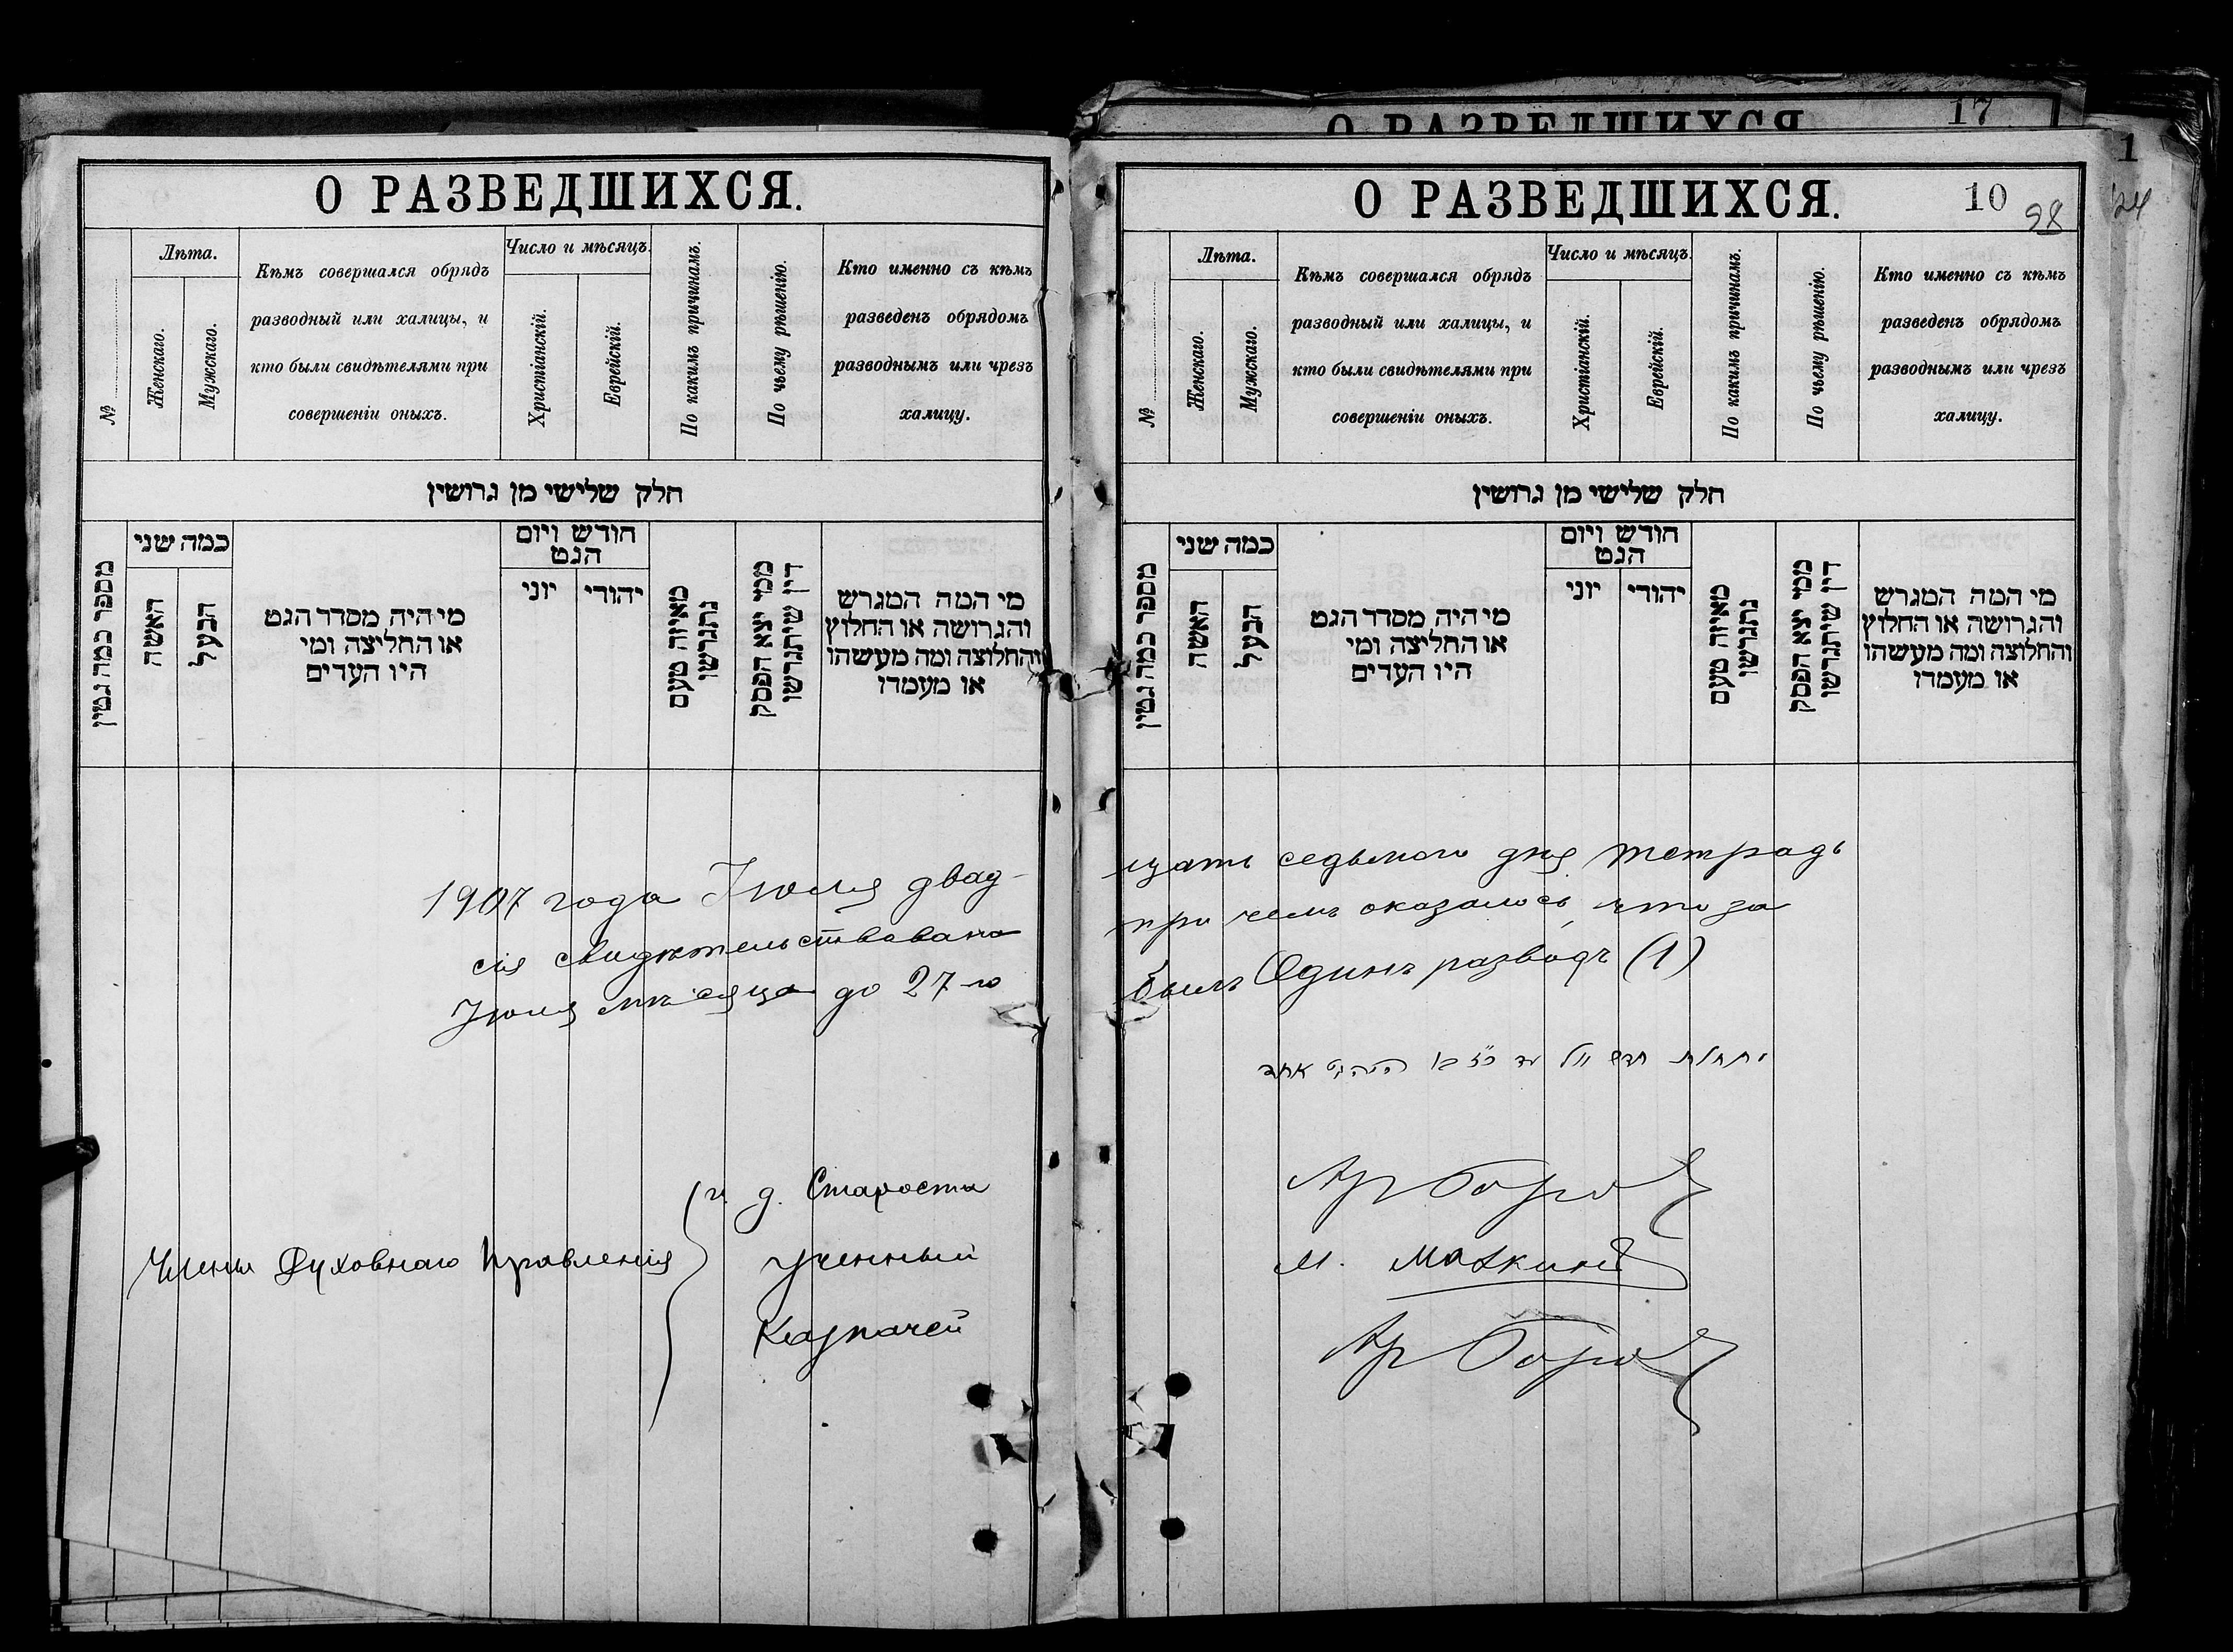 О РАЗВЕДШИХСЯ.
№
Лѣта.
Женскаго.
Мужскаго.
Кѣмъ совершался обрядъ
разводный или халицы, и
кто были свидѣтелями при
совершеніи оныхъ.
Число и мѣсяцъ.
Христіанскій.
Еврейскій.
По какимъ причинамъ.
По чьему рѣшенію.
Кто именно съ кѣмъ
разведенъ обрядомъ
разводнымъ или чрезъ
халицу.
חלק שלישי מן גרושין
מספר כמה גטין
כמה שני
האשה
הבעל
מי היה מסדר הגט
או החליצה ומי
היו העדים
חודש ויום
הגט
יוני
יהודי
מאיזה טעם
נתגרשו
ממי יצא הפסק
דין שיתגרשו
מי המה המגרש
והגרושה או החלוץ
והחלוצה ומה מעשהו
או מעמדו
1907 года Іюля двад-
сія свидѣтельствована
Іюля мѣсяца до 27-го
Члены Духовнаго Правленія
и. д. Староста
Ученный
Казначей
17
О РАЗВЕДШИХСЯ
1
24
О РАЗВЕДШИХСЯ.
10
98
№
Лѣта.
Женскаго.
Мужскаго.
Кѣмъ совершался обрядъ
разводный или халицы, и
кто были свидѣтелями при
совершеніи оныхъ.
Число и мѣсяцъ.
Христіанскій.
Еврейскій.
По какимъ причинамъ.
По чьему рѣшенію.
Кто именно съ кѣмъ
разведенъ обрядомъ
разводнымъ или чрезъ
халицу.
חלק שלישי מן גרושין
מספר כמה גטין
כמה שני
האשה
הבעל
מי היה מסדר הגט
או החליצה ומי
היו העדים
חודש ויום
הגט
יוני
יהודי
מאיזה טעם
נתגרשו
ממי יצא הפסק
דין שיתגרשו
מי המה המגרש
והגרושה או החלוץ
והחלוצה ומה מעשהו
או מעמדו
цать седьмого дня тетрадь
при чемъ оказалось, что за
былъ Одинъ разводъ (1)
חדש יולי עד כ״ז בו אחד
М.